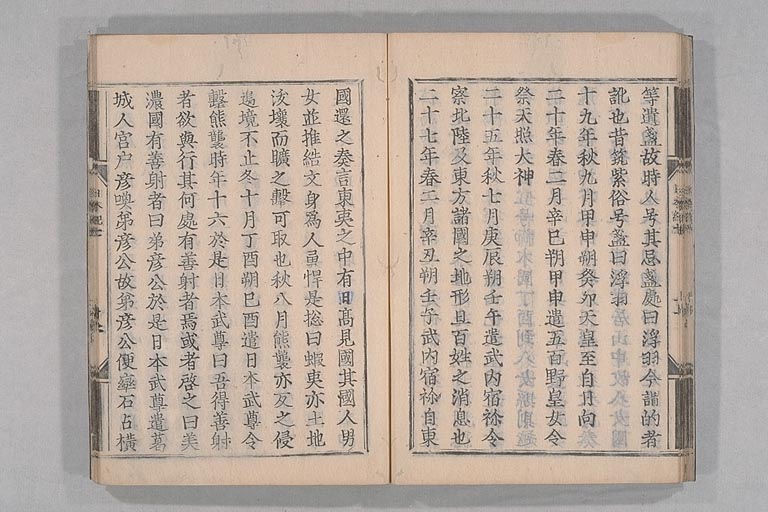 等遺盞故時人号其忌盞處曰浮羽今謂的者
訛也昔筑紫俗号盞曰浮羽
十九年秋九月甲申朔癸卯天皇至自日向
二十年春二月辛巳朔甲申遣五百野皇女令
祭天照大神
二十五年秋七月庚辰朔壬午遣武内宿祢令
察北陸及東方諸國之地形且百姓之消息也
二十七年春二月辛丑朔壬子武内宿祢自東
國還之奏言東夷之中有日髙見國其國人男
女並推結文身爲人勇悍是捴曰蝦夷亦土地
沃壤而曠之擊可取也秋八月熊襲亦反之侵
邊境不止冬十月丁酉朔巳酉遣日本武尊令
擊熊襲時年十六於是日本武尊曰吾得善射
者欲與行其何處有善射者焉或者啓之曰美
濃國有善射者曰弟彦公於是日本武尊遣葛
城人宮戸彦喚弟彦公故第彦公便率石占横